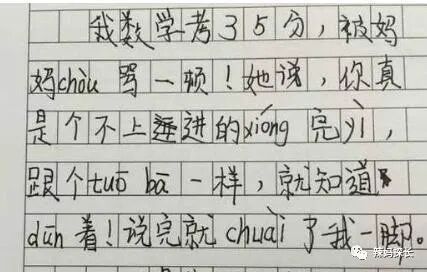 我数学考35分，被妈
妈chòu 骂一顿！她说，你真
是个不上进的xióng 完yì，
跟个tuō bā 一样，就知道
dūn 着！说完就 chuài 了我一脚。
辣妈探长